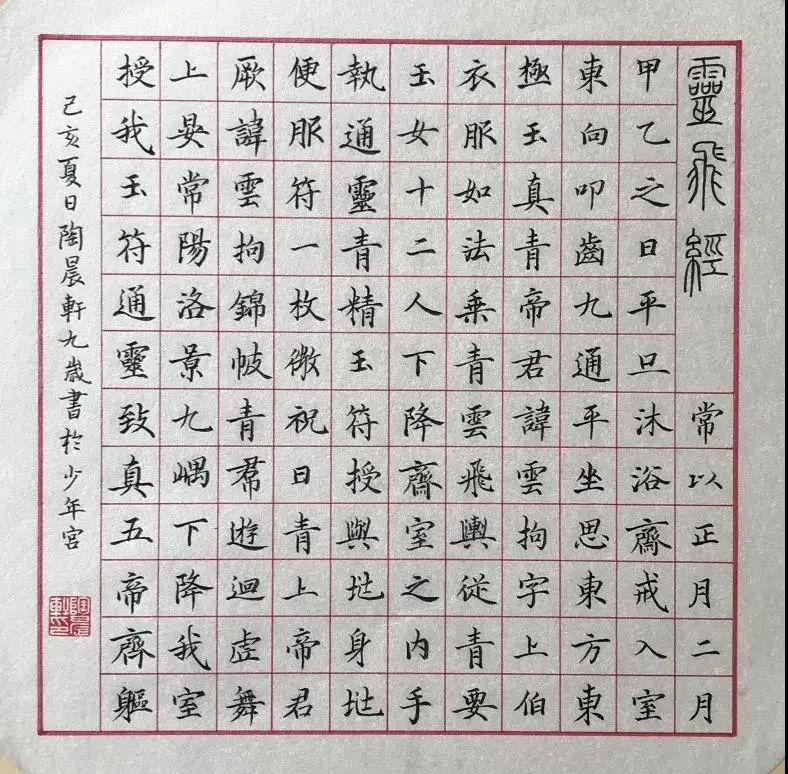 靈飛經
常以正月二月
甲乙之日平旦沐浴齋戒入室
東向叩齒九通平坐思東方東
極玉真青帝君諱雲拘字上伯
衣服如法乘青雲飛輿從青要
玉女十二人下降齋室之內手
執通靈青精玉符授與兆身兆
便服符一枚微祝曰青上帝君
厥諱雲拘錦帔青帬遊迴虛舞
上晏常陽洛景九嵎下降我室
授我玉符通靈致真五帝齊軀
己亥夏日陶晨軒九歲書於少年宮
陶晨軒印